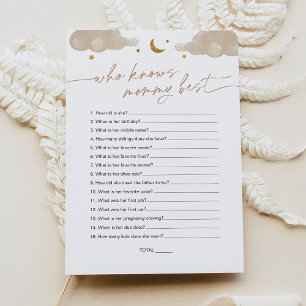 who knows
mommy best
1. How old is she?
2. When is her birthday?
3. What is her middle name?
4. How many siblings does she have?
5. What is her favorite movie?
6. What is her favorite food?
7. What is her favorite animal?
8. What is her shoe size?
9. How did she meet the father-to-be?
10. What is her favorite color?
11. What was her first job?
12. What was her first car?
13. What is her pregnancy craving?
14. When is her due date?
15. How many kids does she want?
TOTAL